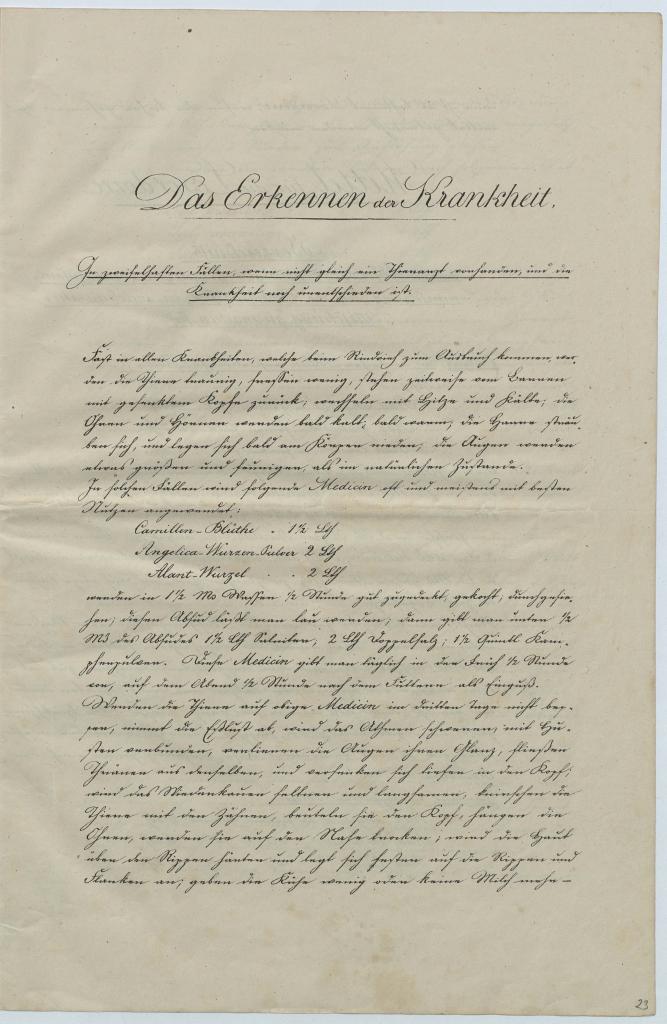 Das Erkennen der Krankheit.
In zweifelhaften Fällen, wenn nicht gleich ein Thierarzt vorhanden, und die
Krankheit noch unentschieden ist.
Fast in allen Krankheiten, welche beim Rindvieh zum Ausbruch kommen, wer-
den die Thiere traurig, fressen wenig, stehen zeitweise vom Barren
mit gesenktem Kopfe zurück; wechseln mit Hitze und Kälte; die
Ohren und Hörner werden bald kalt, bald warm, die Haare sträu-
ben sich, und legen sich bald am Körper nieder, die Augen werden
etwas größer und feuriger, als im natürlichen Zustande.
In solchen Fällen wird folgende Medicin oft und meistens mit besten
Nutzen angewendet:
Camillen-Blüthe . 1½ Lth
Angelica-Wurzen-Pulver 2 Lth
Alant-Wurzel . . 2 Lth
werden in 1½ Mß Wasser ½ Stunde gut zugedeckt, gekocht; durchgesie-
hen; diesen Absud läßt man lau werden; dann gibt man unter ½
Mß des Absudes 1½ Lth Salniter; 2 Lth Doppelsalz; 1½ Quintl Kam-
pherpulver. Diese Medicin gibt man täglich in der Früh ½ Stunde
vor, auf dem Abend ½ Stunde nach dem Futtern als Einguß.
Werden die Thiere auf obige Medicin im dritten Tage nicht bes-
ser, nimmt die Eßlust ab, wird das Athmen schwerer, mit Hu-
sten verbunden, verlieren die Augen ihren Glanz, fließen
Thränen aus denselben, und versenken sich tiefer in den Kopf;
wird das Wiederkauen seltner und langsamer, knirschen die
Thiere mit den Zähnen, beuteln sie den Kopf, hängen die
Ohren, werden sie auf der Nase trocken; wird die Haut
über den Rippen härter und legt sich fester auf die Rippen und
Flanken an; geben die Kühe wenig oder keine Milch mehr –
23